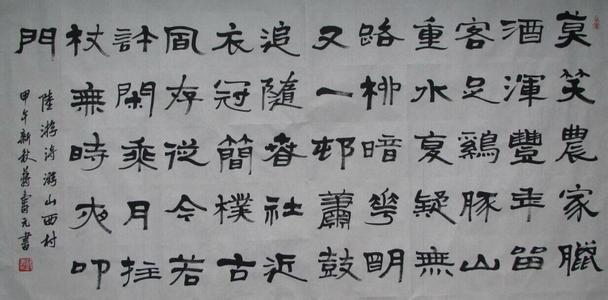 莫笑農家臘
酒渾豐年留
客足鷄豚山
重水复疑無
路柳暗華明
又一邨蕭鼓
追隨春社近
衣冠簡樸古
風存從今若
許閑乘月拄
杖無時夜叩
門
陸游詩游山西村
甲午新秋蔣壽元書